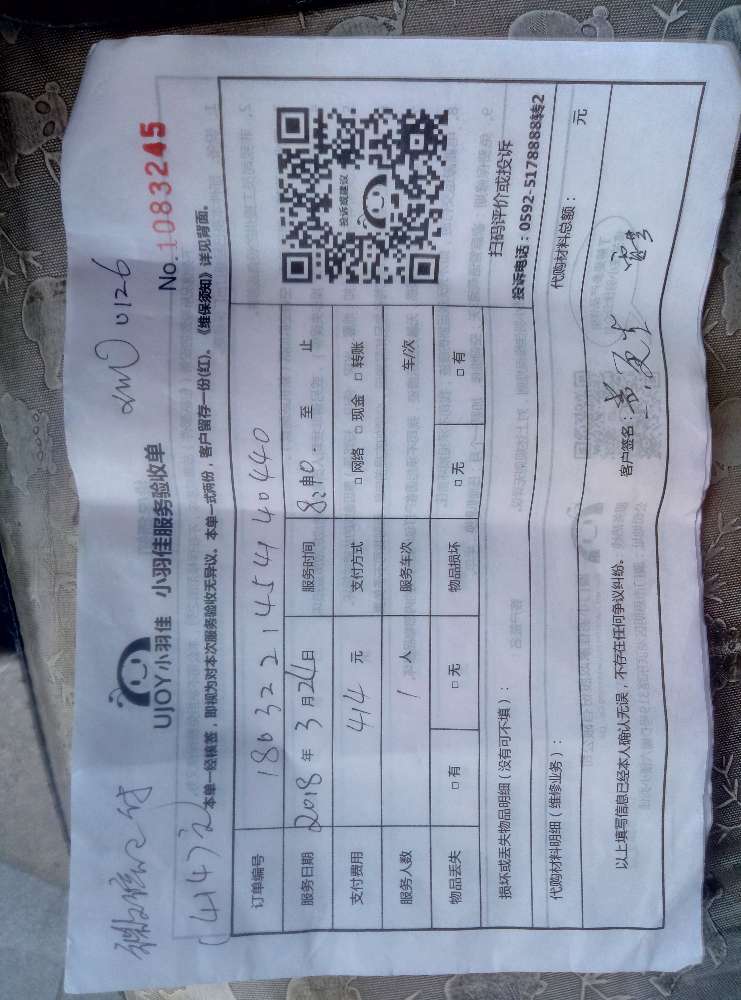 微信已付
(414元)
2m0 0126
UJOY小羽佳 小羽佳服务验收单
No.1083245
本单一经核签，即视为对本次服务验收无异议。本单一式两份，客户留存一份(红)。《维保须知》详见背面。
订单编号 18032214541 40440
服务日期 2018年 3 月24日 服务时间 至 止
支付费用 414 元 支付方式 □ 网络 □ 现金 □ 转账
服务人数 1 人 服务车次 车/次
物品丢失 □ 有 □ 无 物品损坏 □ 无 □ 有
投诉或建议
扫码评价或投诉
投诉电话：0592-5178888转2
损坏或丢失物品明细（没有可不填）：
代购材料明细（维修业务）： 代购材料总额： 元
以上填写信息已经本人确认无误，不存在任何争议纠纷。 客户签名：